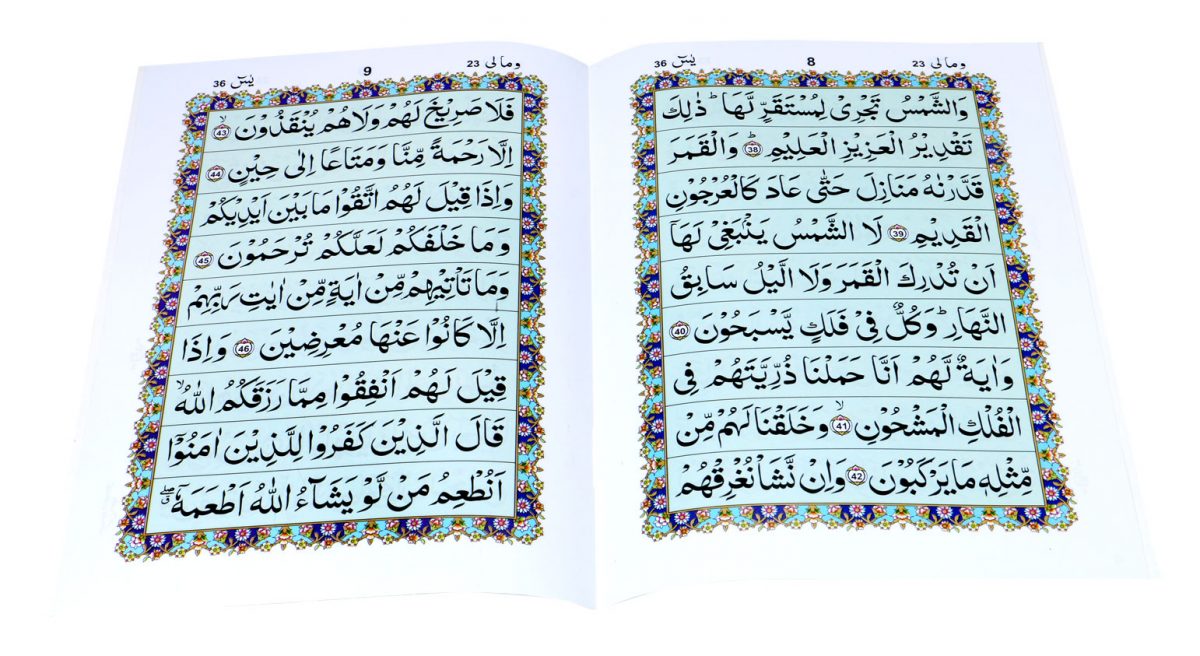 ومالی 23 8 یٰسٓ 36
وَالشَّمۡسُ تَجۡرِیۡ لِمُسۡتَقَرٍّ لَّهَا ؕ ذٰلِكَ
تَقۡدِیۡرُ الۡعَزِیۡزِ الۡعَلِیۡمِ ؕ 38 وَالۡقَمَرَ
قَدَّرۡنٰهُ مَنَازِلَ حَتّٰی عَادَ كَالۡعُرۡجُوۡنِ
الۡقَدِیۡمِ 39 لَا الشَّمۡسُ یَنۡۢبَغِیۡ لَهَاۤ
اَنۡ تُدۡرِكَ الۡقَمَرَ وَلَا الَّیۡلُ سَابِقُ
النَّهَارِ ؕ وَكُلٌّ فِیۡ فَلَكٍ یَّسۡبَحُوۡنَ 40
وَاٰیَةٌ لَّهُمۡ اَنَّا حَمَلۡنَا ذُرِّیَّتَهُمۡ فِی
الۡفُلۡكِ الۡمَشۡحُوۡنِ ۙ 41 وَخَلَقۡنَا لَهُمۡ مِّنۡ
مِّثۡلِهٖ مَا یَرۡكَبُوۡنَ 42 وَاِنۡ نَّشَاۡ نُغۡرِقۡهُمۡ
ومالی 23 9 یٰسٓ 36
فَلَا صَرِیۡخَ لَهُمۡ وَلَا هُمۡ یُنۡقَذُوۡنَ ۙ 43
اِلَّا رَحۡمَةً مِّنَّا وَمَتَاعًا اِلٰی حِیۡنٍ 44
وَاِذَا قِیۡلَ لَهُمُ اتَّقُوۡا مَا بَیۡنَ اَیۡدِیۡكُمۡ
وَمَا خَلۡفَكُمۡ لَعَلَّكُمۡ تُرۡحَمُوۡنَ 45
وَمَا تَاۡتِیۡهِمۡ مِّنۡ اٰیَةٍ مِّنۡ اٰیٰتِ رَبِّهِمۡ
اِلَّا كَانُوۡا عَنۡهَا مُعۡرِضِیۡنَ 46 وَاِذَا
قِیۡلَ لَهُمۡ اَنۡفِقُوۡا مِمَّا رَزَقَكُمُ اللّٰهُ ۙ
قَالَ الَّذِیۡنَ كَفَرُوۡا لِلَّذِیۡنَ اٰمَنُوۡۤا
اَنُطۡعِمُ مَنۡ لَّوۡ یَشَآءُ اللّٰهُ اَطۡعَمَهٗۤ ۖق